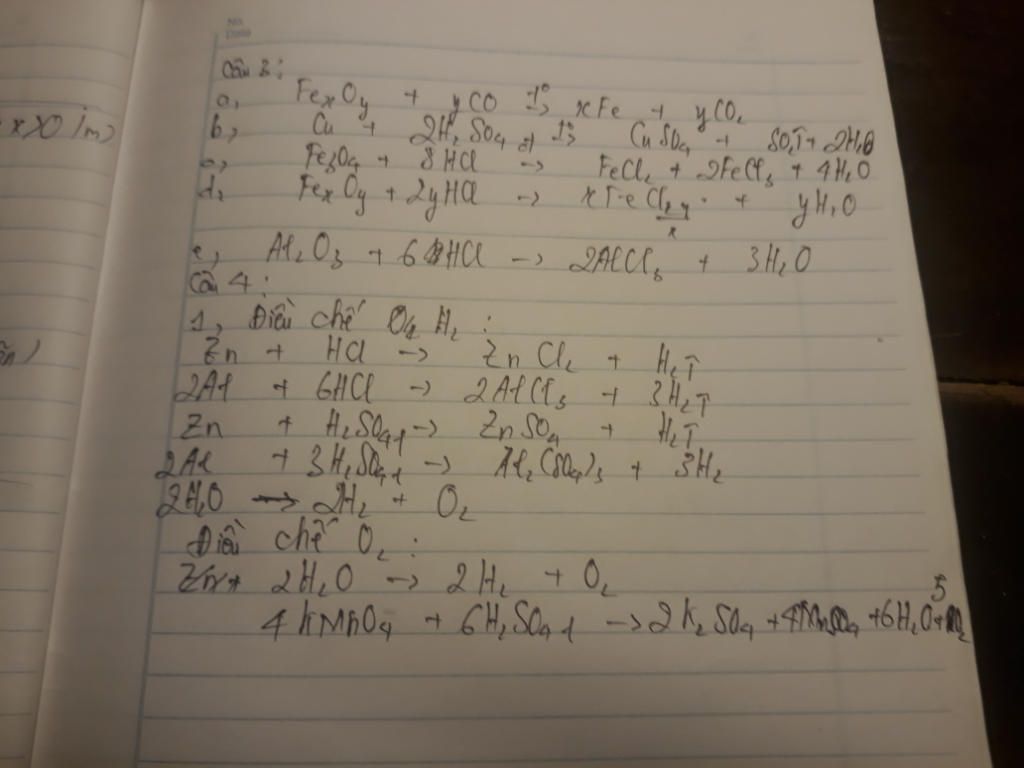 No.
Date
Câu 3:
a, FexOy + yCO t°→ xFe + yCO2
b, Cu + 2H2SO4 đ t°→ CuSO4 + SO2↑ + 2H2O
c, Fe3O4 + 8HCl → FeCl2 + 2FeCl3 + 4H2O
d, FexOy + 2yHCl → xFeCl2y/x + yH2O
e, Al2O3 + 6HCl → 2AlCl3 + 3H2O
Câu 4:
1, Điều chế H2:
Zn + HCl → ZnCl2 + H2↑
2Al + 6HCl → 2AlCl3 + 3H2↑
Zn + H2SO4 l → ZnSO4 + H2↑
2Al + 3H2SO4 l → Al2(SO4)3 + 3H2
2H2O → 2H2 + O2
Điều chế O2:
2H2O → 2H2 + O2
4KMnO4 + 6H2SO4 l → 2K2SO4 + 4MnSO4 + 6H2O + 5O2